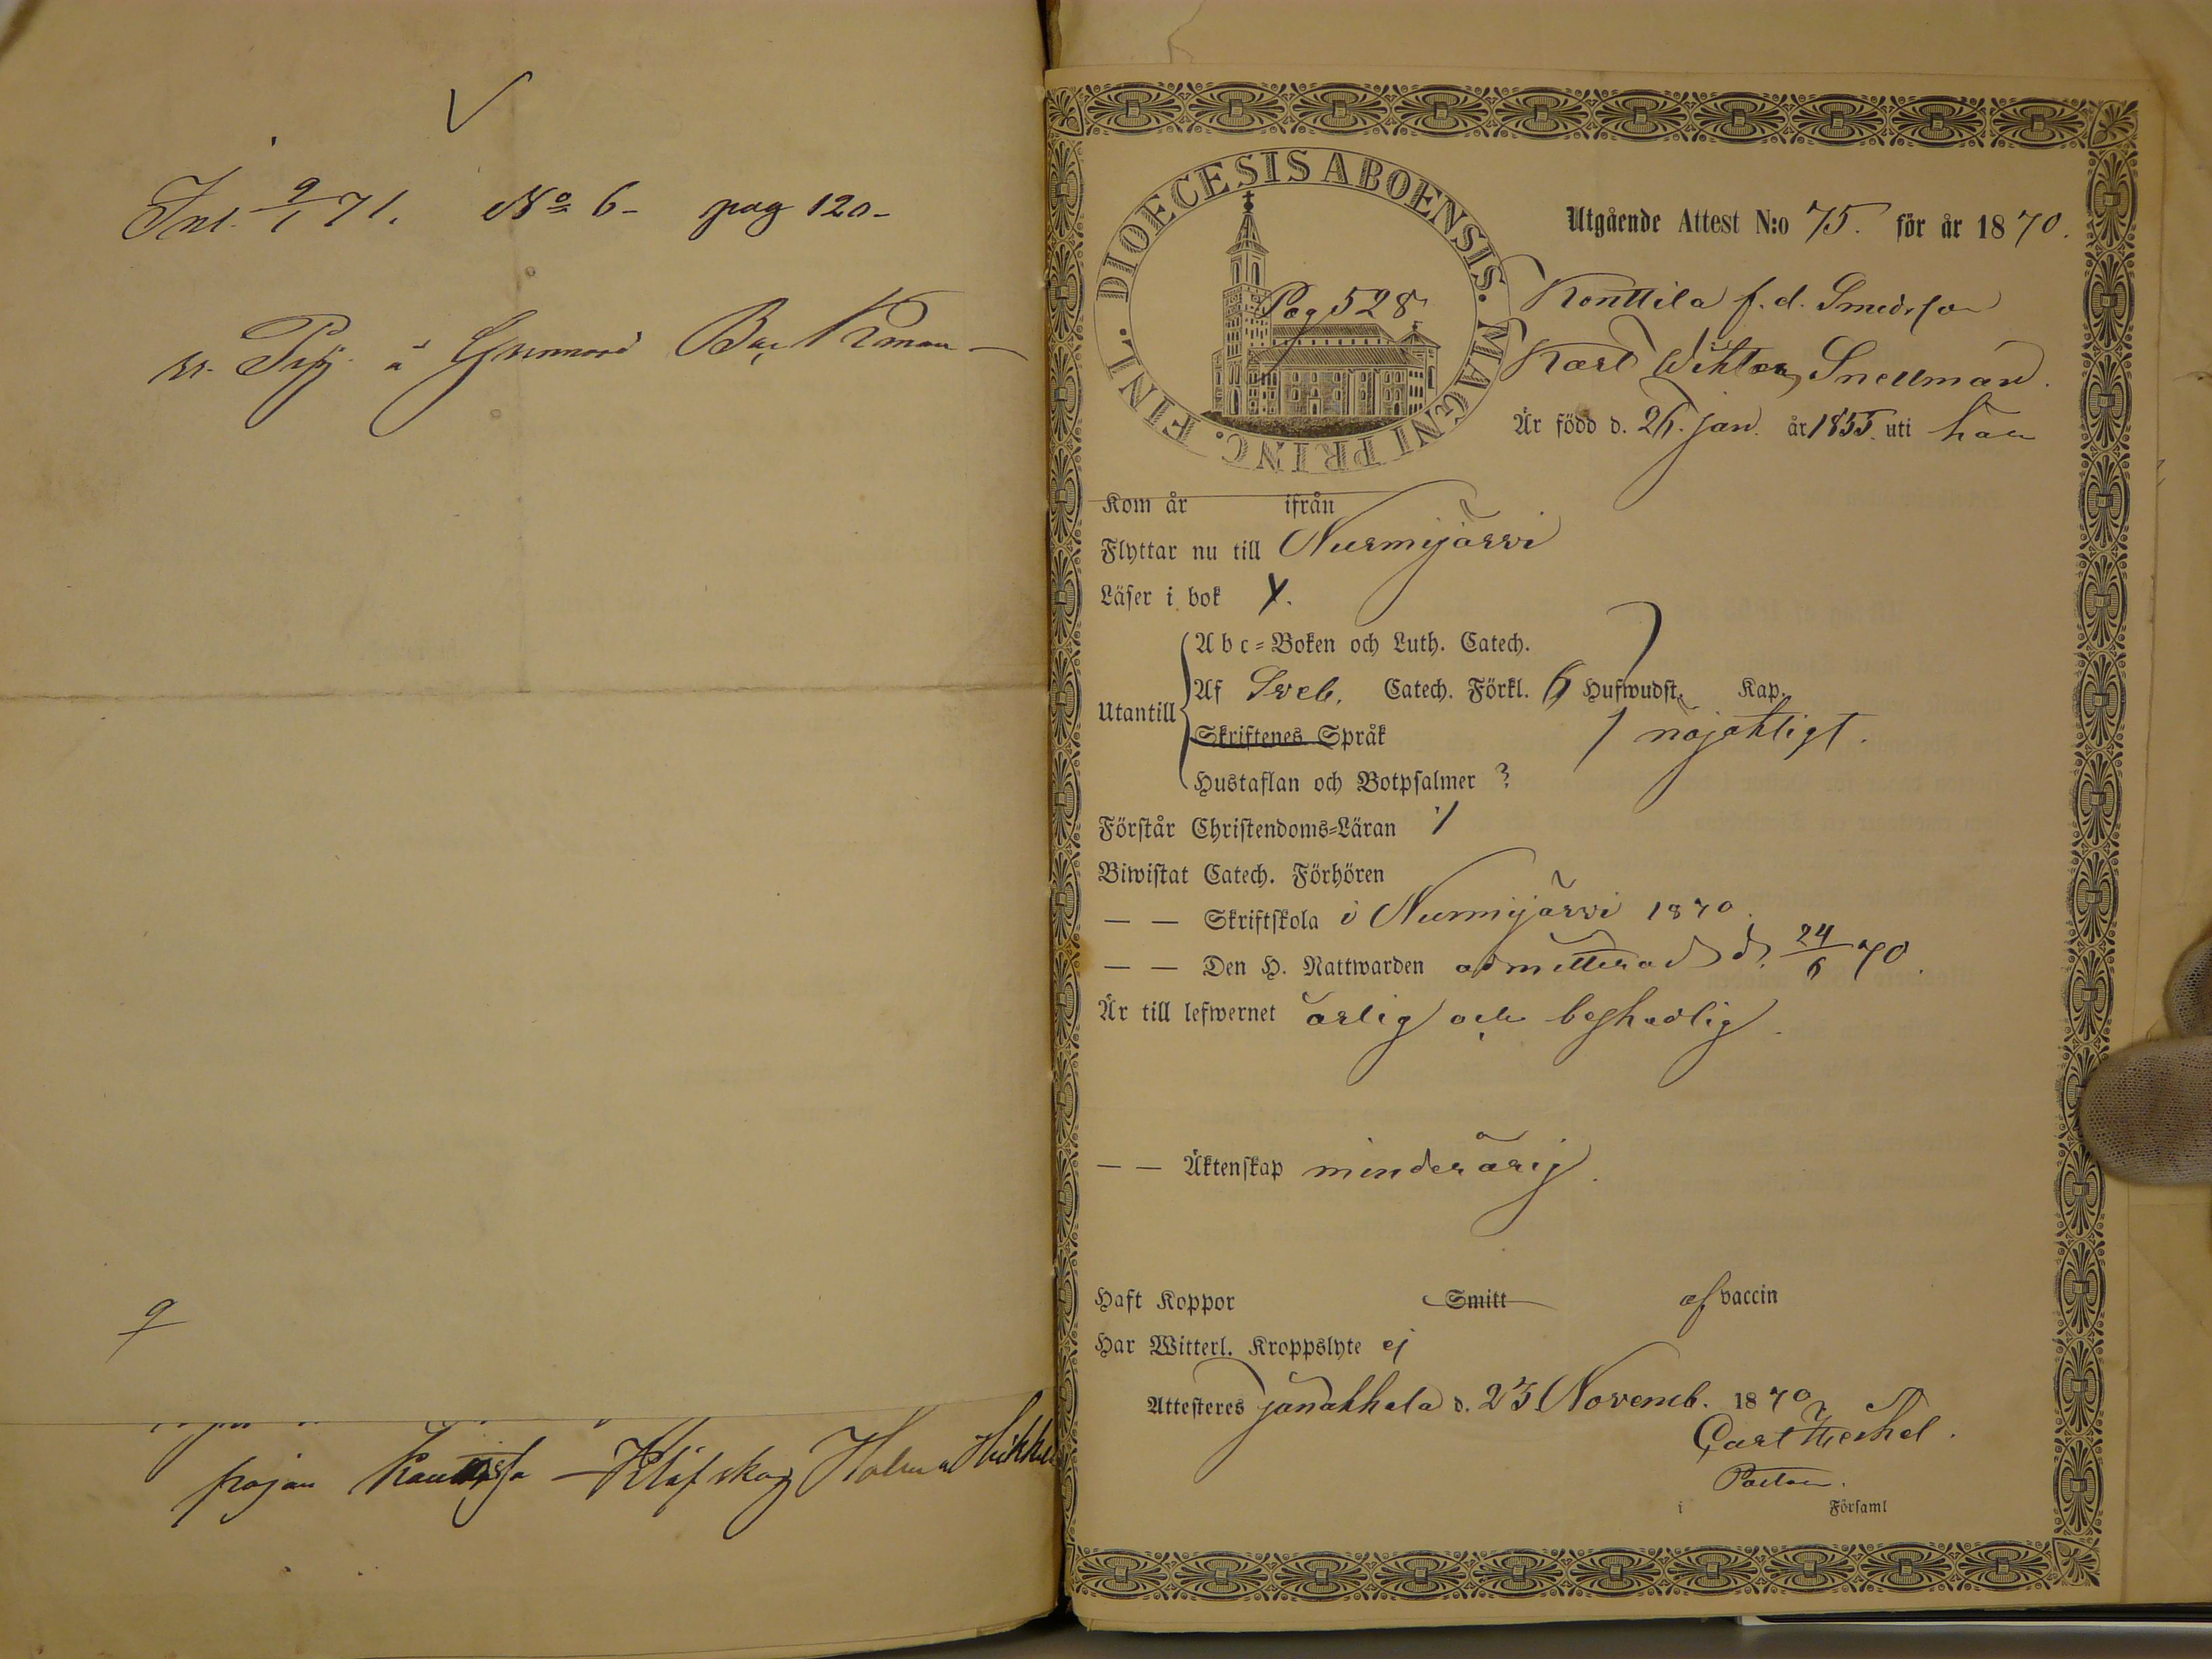 Inl. 9/1 71. No 6- pag 120-
å Gunnard Backman
pojan
DIOECESIS ABOENSIS. MAGNI PRINC. FINL.
Pag 528
Utgående Attest N:o 75. för år 1870.
Konttila f. d. Smedson
Karl Wiktor Snellman.
Är född d. 26. jan. år 1855. uti här
Kom år ifrån
Flyttar nu till Nurmijärvi
Läser i bok
Utantill
Abc=Boken och Luth. Catech.
Af Sveb. Catech. Förkl. 6 Hufwudst. Kap.
Skriftenes Språk
nöjaktigt.
Hustaflan och Botpsalmer
Förstår Christendoms=Läran
Biwistat Catech. Förhören
— — Skriftskola i Nurmijärvi 1870.
— — Den H. Nattwarden admitterad d. 24/6 70.
Är till lefwernet ärlig och beskedlig.
— — Äktenskap minderårig.
Haft Koppor Smitt af vaccin
Har Witterl. Kroppslyte ej
Attesteres Janakkala d. 23 Novemb. 1870
Carl
Pastor.
i Församl